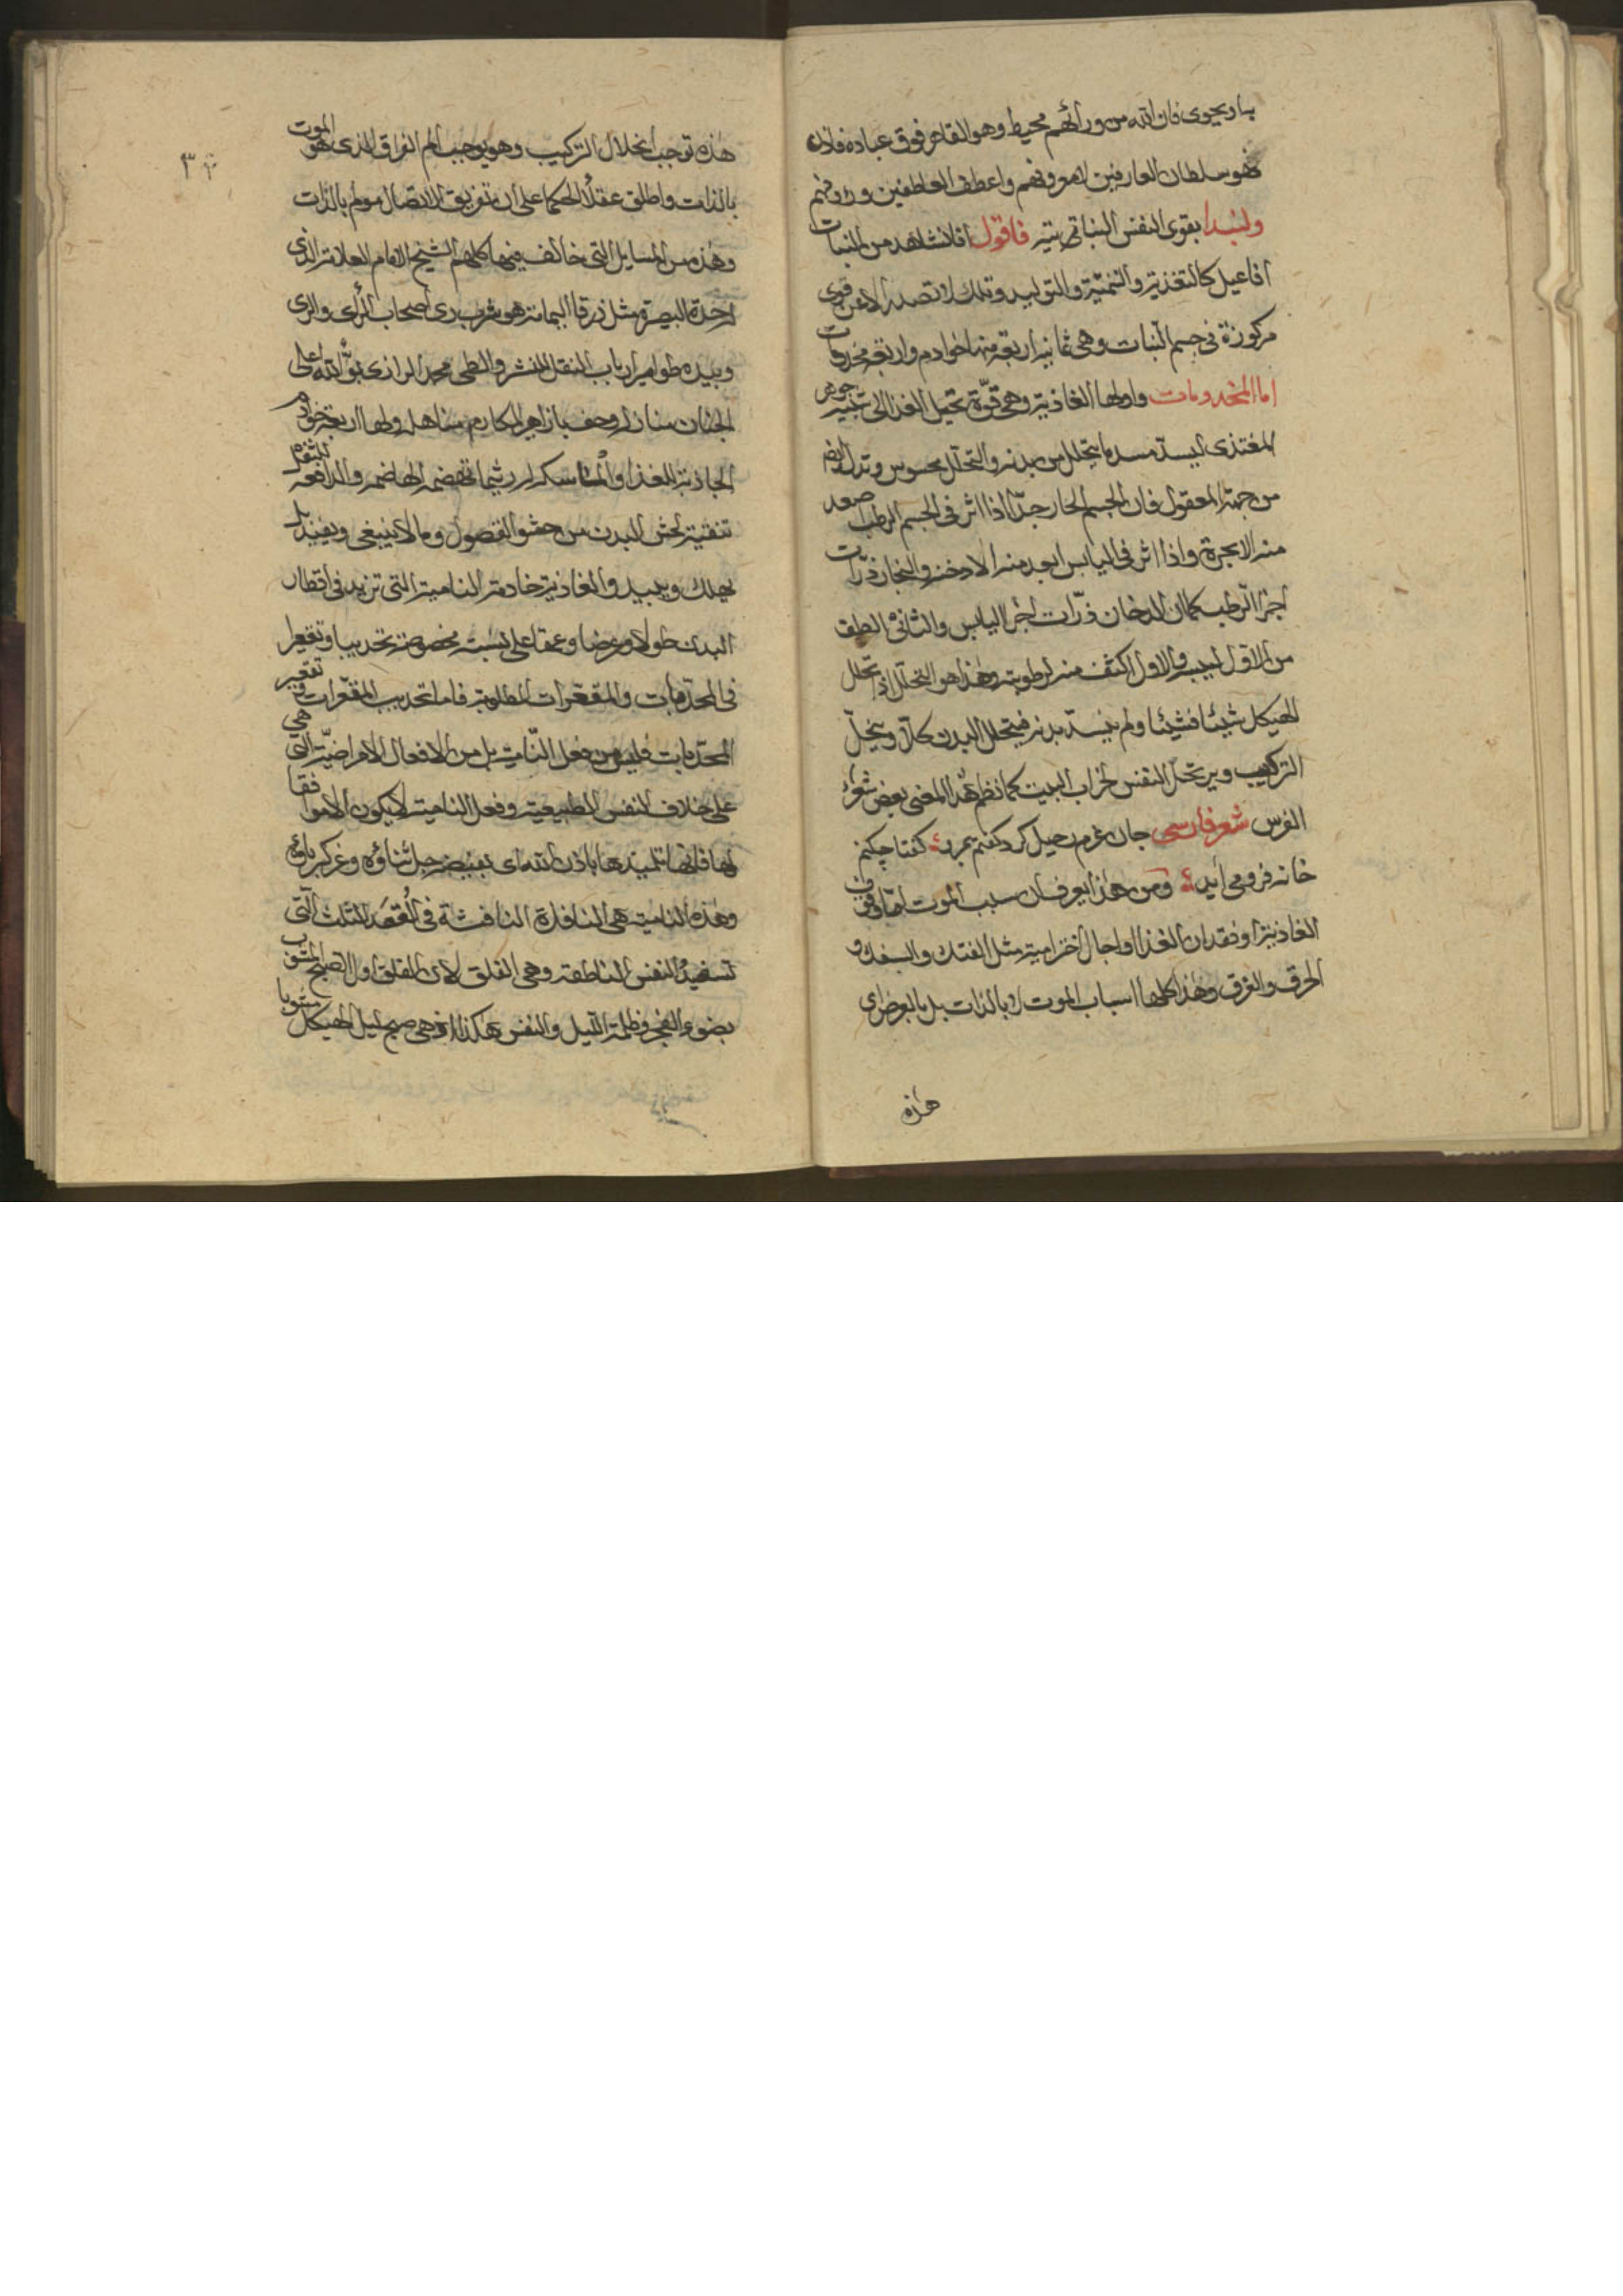 بما يحوى فان الله من ورائهم محيط وهو القاهر فوق عباده فاذن
فهو سلطان العارفين لامعروفهم واعطف العاطفين وردوفهم
ولنبدا بقوى النفس النباتية فاقول افلا نشاهد من النبات
افاعيل كالتغذية والتنمية والتوليد وتلك لا تصدر الا عن قوى
مركوزة فى جسم النبات وهى ثمانية اربعة منها خوادم واربعة مخدومات
اما المخدومات واولها الغاذية وهى قوّة تحيل الغذا الى شبيه جوهر
المغتذى ليسدّ مسد ما يتحلل من بدنه والتحلل محسوس وتدل ايضا
من جهة المعقول فان الجسم الحار جدّا اذا اثر فى الجسم الرطب صعد
منه الابخرة واذا اثر فى اليابس اصعد منه الادخنة والبخار ذرّات
اجزا الرطب كما ان الدخان ذرّات اجزا اليابس والثانى الطف
من الاوّل ليبسه والاول اكثف منه لرطوبته وهذا هو التحلل اذ تحلل
الهيكل شيئا فشيئا ولم ينسدّ بدنه فيتحلل البدن كلّا وينحلّ
التركيب ويرتحل النفس لخراب البيت كما نظم هذا المعنى بعض شعراء
الفرس شعر فارسى جان عزم رحيل كرد كفتم بمرو كفتا چكنم
خانه فرو مى آيد ومن هذا يعرف ان سبب الموت اما وقوف
الغاذية او فقدان الغذا او اجال اخترامية مثل الفتك والسفك و
الحرق والغرق وهذا كلها اسباب الموت لا بالذات بل بالعرض اى
هذه
٣٠
هذه توجب انحلال التركيب وهو يوجب الم الفراق الذى هو الموت
بالذات واطلق عقلا الحكما على ان تفريق الاتصال مولم بالذات
وهذه من المسايل التى خالف فيها كلهم الشيخ الامام العلامة الذى
لحدة البصيرة مثل زرقا اليمامة هو شرب رى اصحاب الرأى والرى
وبيده طوامير ارباب النقل للنشر والطى محمد الرازى بوّاه الله اعلى
الجنان منازله وحف بازاهير المكارم مناهله ولها اربعة خوادم
الجاذبة للغذا والماسكة له ريثما تهضمه الهاضمة والدافعة للثفل
تنقية لحش البدن من حشو الفضول وما لا ينبغى ويفيد بل
يهلك ويبيد والغاذية خادمة النامية التى تزيد فى اقطار
البدن طولا وعرضا وعمقا على نسبة مخصوصة تحديبا وتقعيرا
فى المحدبات والمقعّرات المطلوبة فاما تحديب المقعّرات وتقعير
المحدبات فليس من فعل النامية بل من الافعال الامراضيّة التى هى
على خلاف النفس الطبيعية وفعل النامية لا يكون الا موافقا
لها فانها تلميذها باذن الله اى بفيضه جل ثناؤه وعز كبرياؤه
وهذه النامية هى النافذة النافثة فى العُقد الثلث التى
تستعيذ النفس الناطقة وهى الفلق لان الفلق اول الصبح المشوب
بضوء الفجر وظلمة الليل والنفس هكذا اذ هى صبح ليل الهيكل مشوبا